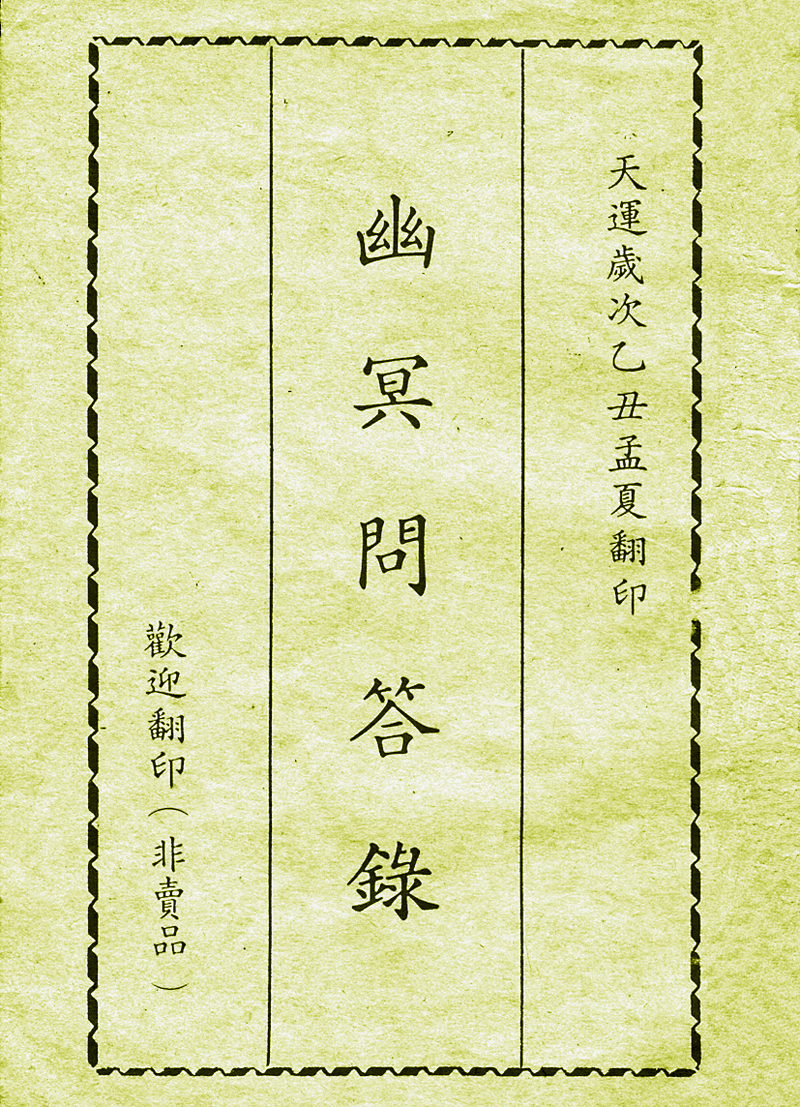 天運歲次乙丑孟夏翻印
幽冥問答錄
歡迎翻印（非賣品）